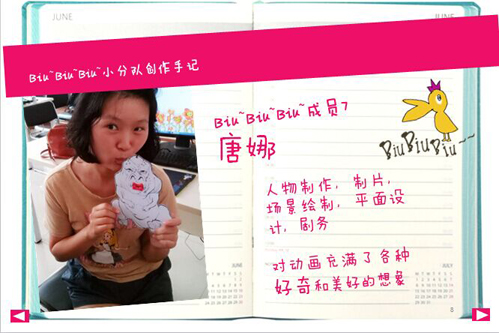 JUNE
JUNE
Biu~Biu~Biu~小分队创作手记
Biu~Biu~Biu~成员7
唐娜
BiuBiuBiu~~
人物制作，制片，
场景绘制，平面设
计，剧务
对动画充满了各种
好奇和美好的想象
JUNE
JULY
8